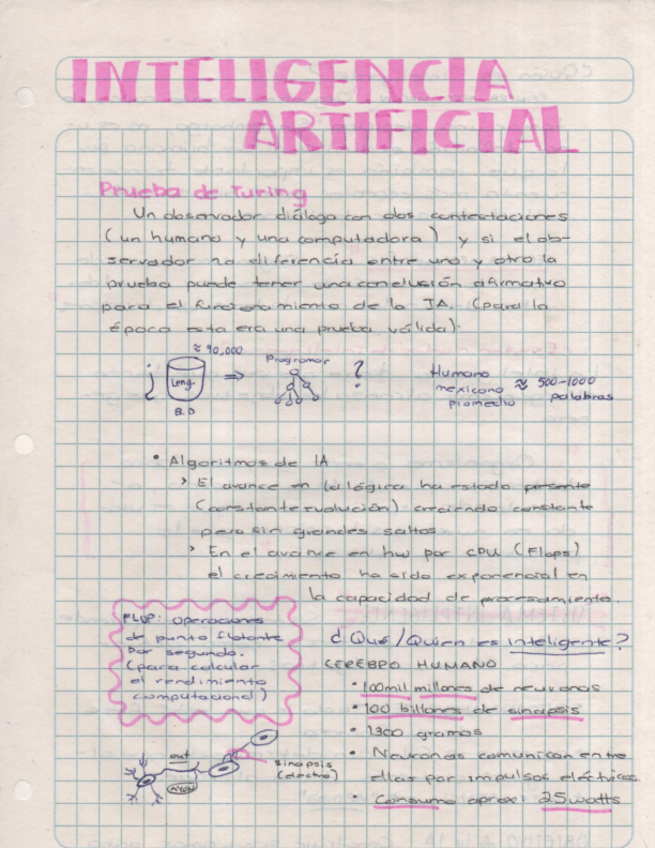 INTELIGENCIA
ARTIFICIAL
Prueba de Turing
Un observador diáloga con dos contestaciones
(un humano y una computadora) y si el ob-
servador no diferencía entre uno y otro la
prueba puede tener una conclusión afirmativo
para el funcionamiento de la IA. (para la
época esta era una prueba válida).
¿ Leng. ≈ 90,000 ⇒ Programar ?
B.D
Humano
mexicano ≈ 500-1000
promedio palabras
• Algoritmos de IA
> El avance en la lógica ha estado presente
(constante evolución) creciendo constante
pero sin grandes saltos.
> En el avance en hw por CPU (Flops)
el crecimiento ha sido exponencial en
la capacidad de procesamiento.
FLOP: Operaciones
de punto flotante
por segundo.
(para calcular
el rendimiento
computacional)
¿Qué/Quien es inteligente?
CEREBRO HUMANO
• 100mil millones de neuronas
• 100 billones de sinapsis
• 1300 gramos
• Neuronas comunican entre
ellas por impulsos eléctricos.
• Consumo aprox: 25watts
out
axon
sinapsis
(electro)